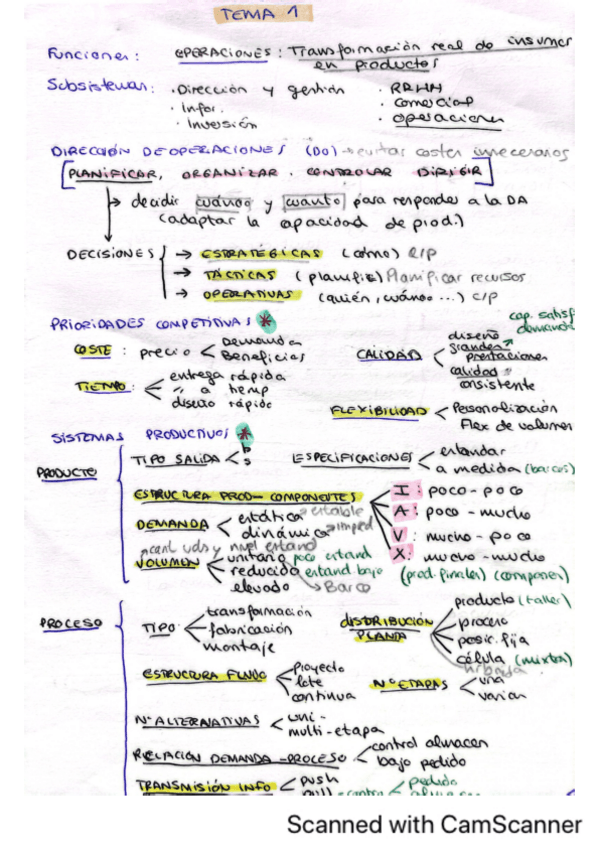 TEMA 1
Funciones: OPERACIONES: Transformación real de insumos en productos
Subsistemas: · Dirección y gestión · RRHH
· Infor. · Comercial
· Inversión · Operaciones
DIRECCIÓN DE OPERACIONES (DO) → evitar costes innecesarios
[PLANIFICAR, ORGANIZAR, CONTROLAR DIRIGIR]
→ decidir cuándo y cuanto para responder a la DA
(adaptar la capacidad de prod.)
DECISIONES → ESTRATÉGICAS (cómo) R/P
→ TÁCTICAS (planifi) Planificar recursos
→ OPERATIVAS (quién, cuándo ...) C/P
PRIORIDADES COMPETITIVAS *
cap. satisf demanda
COSTE: precio < Demanda
Beneficios
CALIDAD < diseño grandes prestaciones
calidad consistente
TIEMPO: entrega rápida
" a temp
diseño rápido
FLEXIBILIDAD < Personalización
Flex de volumen
SISTEMAS PRODUCTIVOS *
PRODUCTO
TIPO SALIDA < P
S
ESPECIFICACIONES < estandar
a medida (barcos)
ESTRUCTURA PROD- COMPONENTES
I: poco - poco
A: poco - mucho
V: mucho - poco
X: mucho - mucho
(prod. finales) (componen)
DEMANDA < estática → estable
dinámica → imped
cant uds y nivel estand
VOLUMEN < unitario poco estand
reducido estand bajo
elevado → Barco
PROCESO
TIPO: transformación
fabricación
montaje
DISTRIBUCIÓN PLANTA
producto (taller)
proceso
posic. fija
célula (mixta)
híbrida
ESTRUCTURA FLUJO < Proyecto
lote
continua
Nº ETAPAS < una
varias
Nº ALTERNATIVAS < uni -
multi-etapa
RELACION DEMANDA - PROCESO < control almacen
bajo pedido
TRANSMISIÓN INFO < push
pull - contra < pedido
Scanned with CamScanner